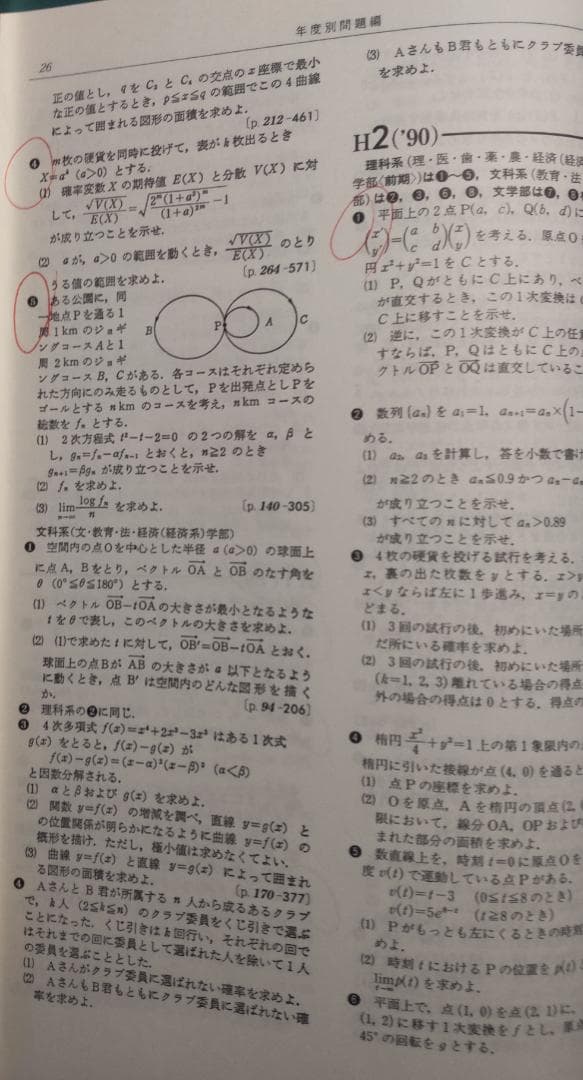 年度別問題編
26
正の値とし，qをC₃とC₄の交点のx座標で最小
な正の値とするとき，p≦x≦qの範囲でこの4曲線
によって囲まれる図形の面積を求めよ．
[p.212-461]
❹ m枚の硬貨を同時に投げて，表がk枚出るとき
X=aᵏ (a>0) とする．
(1) 確率変数Xの期待値E(X)と分散V(X)に対
して，√V(X)/E(X)=√(2ᵐ(1+a²)ᵐ/(1+a)²ᵐ−1)
が成り立つことを示せ．
(2) aが，a>0の範囲を動くとき，√V(X)/E(X)のとり
うる値の範囲を求めよ．
[p.264-571]
❺ ある公園に，同
一地点Pを通る1
周1kmのジョギ
ングコースAと1
周2kmのジョギ
B P A C
ングコースB，Cがある．各コースはそれぞれ定めら
れた方向にのみ走るものとして，Pを出発点としPを
ゴールとするnkmのコースを考え，nkmコースの
総数をfₙとする．
(1) 2次方程式t²−t−2=0の2つの解をα，βと
し，gₙ=fₙ−αfₙ₋₁とおくと，n≧2のとき
gₙ₊₁=βgₙが成り立つことを示せ．
(2) fₙを求めよ．
(3) lim n→∞ log fₙ/n を求めよ．
[p.140-305]
文科系(文・教育・法・経済(経済系)学部)
❶ 空間内の点Oを中心とした半径a(a>0)の球面上
に点A，Bをとり，ベクトルOA→とOB→のなす角を
θ (0°≦θ≦180°)とする．
(1) ベクトルOB→−tOA→の大きさが最小となるような
tをθで表し，このベクトルの大きさを求めよ．
(2) (1)で求めたtに対して，OB'→=OB→−tOA→とおく．
球面上の点BがAB→の大きさがa以下となるよう
に動くとき，点B'は空間内のどんな図形を描く
か．
[p.94-206]
❷ 理科系の❷に同じ．
❸ 4次多項式f(x)=x⁴+2x³−3x²はある1次式
g(x)をとると，f(x)−g(x)が
f(x)−g(x)=(x−α)²(x−β)² (α<β)
と因数分解される．
(1) αとβおよびg(x)を求めよ．
(2) 関数y=f(x)の増減を調べ，直線y=g(x)と
の位置関係が明らかになるように曲線y=f(x)の
概形を描け．ただし，極小値は求めなくてよい．
(3) 曲線y=f(x)と直線y=g(x)によって囲まれ
る図形の面積を求めよ．
[p.170-377]
❹ AさんとB君が所属するn人から成るあるクラブ
で，k人(2≦k≦n)のクラブ委員をくじ引きで選ぶ
ことになった．くじ引きはk回行い，それぞれの回で
はそれまでの回に委員として選ばれた人を除いて1人
の委員を選ぶこととした．
(1) Aさんがクラブ委員に選ばれない確率を求めよ．
(2) AさんもB君もともにクラブ委員に選ばれない確
率を求めよ．
(3) AさんもB君もともにクラブ委員
を求めよ．
H2('90)
理科系(理・医・歯・薬・農・経済(経済
学部〈前期〉)は❶〜❺，文科系(教育・法
部)は❷，❸，❻，❽，文学部は❼，❽
❶ 平面上の2点P(a, c)，Q(b, d)に
(x' y')=(a b c d)(x y)を考える．原点O
円x²+y²=1をCとする．
(1) P，QがともにC上にあり，ベ
が直交するとき，この1次変換は
C上に移すことを示せ．
(2) 逆に，この1次変換がC上の任
すならば，P，QはともにC上の
クトルOP→とOQ→は直交しているこ
❷ 数列{aₙ}をa₁=1，aₙ₊₁=aₙ×(1−
める．
(1) a₂，a₃を計算し，答を小数で書け
(2) n≧2のときaₙ≦0.9かつaₙ−aₙ
が成り立つことを示せ．
(3) すべてのnに対してaₙ>0.89
が成り立つことを示せ．
❸ 4枚の硬貨を投げる試行を考える．
x，裏の出た枚数をyとする．x>y
x<yならば左に1歩進み，x=yの
どまる．
(1) 3回の試行の後，初めにいた場所
だ所にいる確率を求めよ．
(2) 3回の試行の後，初めにいた場所
(k=1, 2, 3)離れている場合の得点
外の場合の得点は0とする．得点の
❹ 楕円x²/4+y²=1上の第1象限内の
楕円に引いた接線が点(4, 0)を通ると
(1) 点Pの座標を求めよ．
(2) Oを原点，Aを楕円の頂点(2,
限において，線分OA，OPおよび
まれた部分の面積を求めよ．
❺ 数直線上を，時刻t=0に原点Oを
度v(t)で運動している点Pがある．
v(t)=t−3 (0≦t≦8のとき)
v(t)=5e⁸⁻ᵗ (t≧8のとき)
(1) Pがもっとも左にくるときの時刻
めよ．
(2) 時刻tにおけるPの位置をp(t)と
lim t→∞ p(t)を求めよ．
❻ 平面上で，点(1, 0)を点(2, 1)に，
(1, 2)に移す1次変換をfとし，原点
45°の回転をgとする．